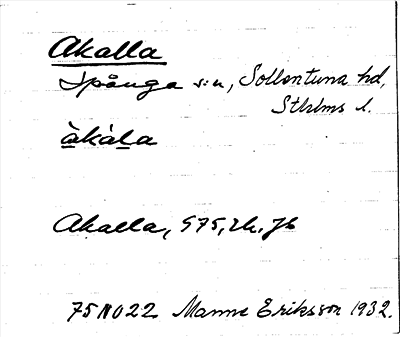 Akalla
Spånga s:n, Sollentuna hd,
Sthlms l.
àkàla
Akalla, 975, Jb
75 NO 22 Manne Eriksson 1932.